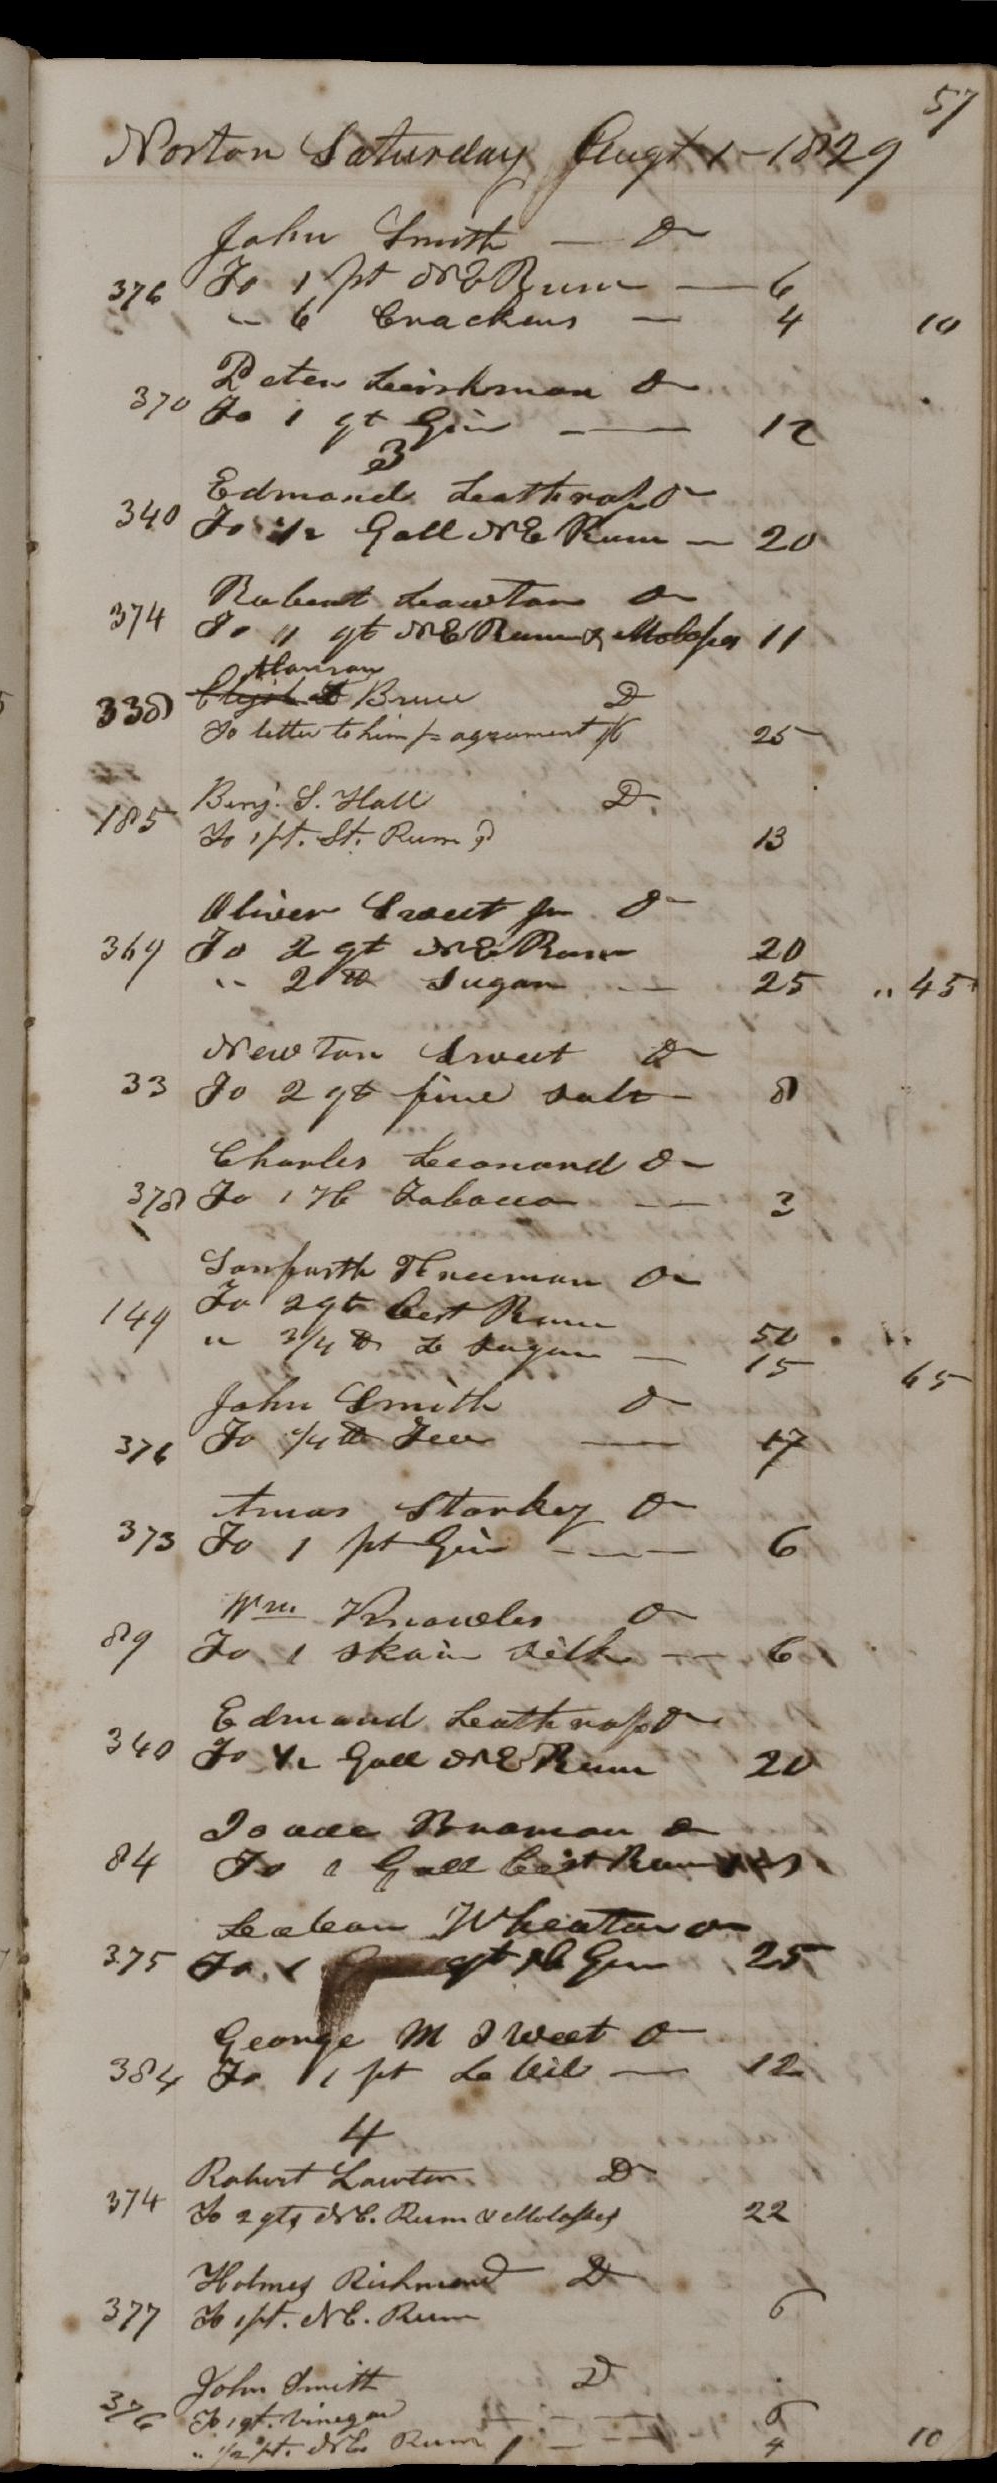 57
Norton Saturday Augt 1 - 1829
John Smith — Dr
376 To 1 pt N E Rum — 6
" 6 Crackers — 4 10
Peter Leishman Dr
370 To 1 qt Gin — 12
3
Edmond Leathrop Dr
340 To 1/2 Gall N E Rum — 20
Robert Lawton Dr
374 To 1 qt N E Rum & Molasses 11
Alanson
338 Bruce D
To letter to him p agreement 25
Benj. S. Hall D
185 To 1 pt. St. Rum 13
Oliver Sweet Jr Dr
369 To 2 qt N E Rum 20
" 2 lb Sugar — 25 " 45
Newton Sweet Dr
33 To 2 qt fine salt - 8
Charles Leonard Dr
378 To 1 Hd Tobacco — 3
Sanforth Freeman Dr
149 To 2 qt best Rum 50
" 3/4 lb Lo sugar — 15 65
John Smith Dr
376 To 1/4 lb Tea — 17
Amas Starkey Dr
373 To 1 pt Gin — 6
Wm Knowles Dr
89 To 1 skain silk — 6
Edmond Leathrop Dr
340 To 1/2 Gall N E Rum 20
Isaac Braman Dr
84 To 1 Gall best Rum
Laban Wheaton Dr
375 To 1 qt H Gin 25
George M Sweet Dr
384 To 1 pt La Oil — 12
4
Robert Lawton D
374 To 2 qts N E. Rum & Molasses 22
Holmes Richmond D
377 To 1 pt. N E. Rum 6
John Smith D
376 To 1 qt. Vinegar — 6
" 1/2 pt. N E. Rum — 4 10